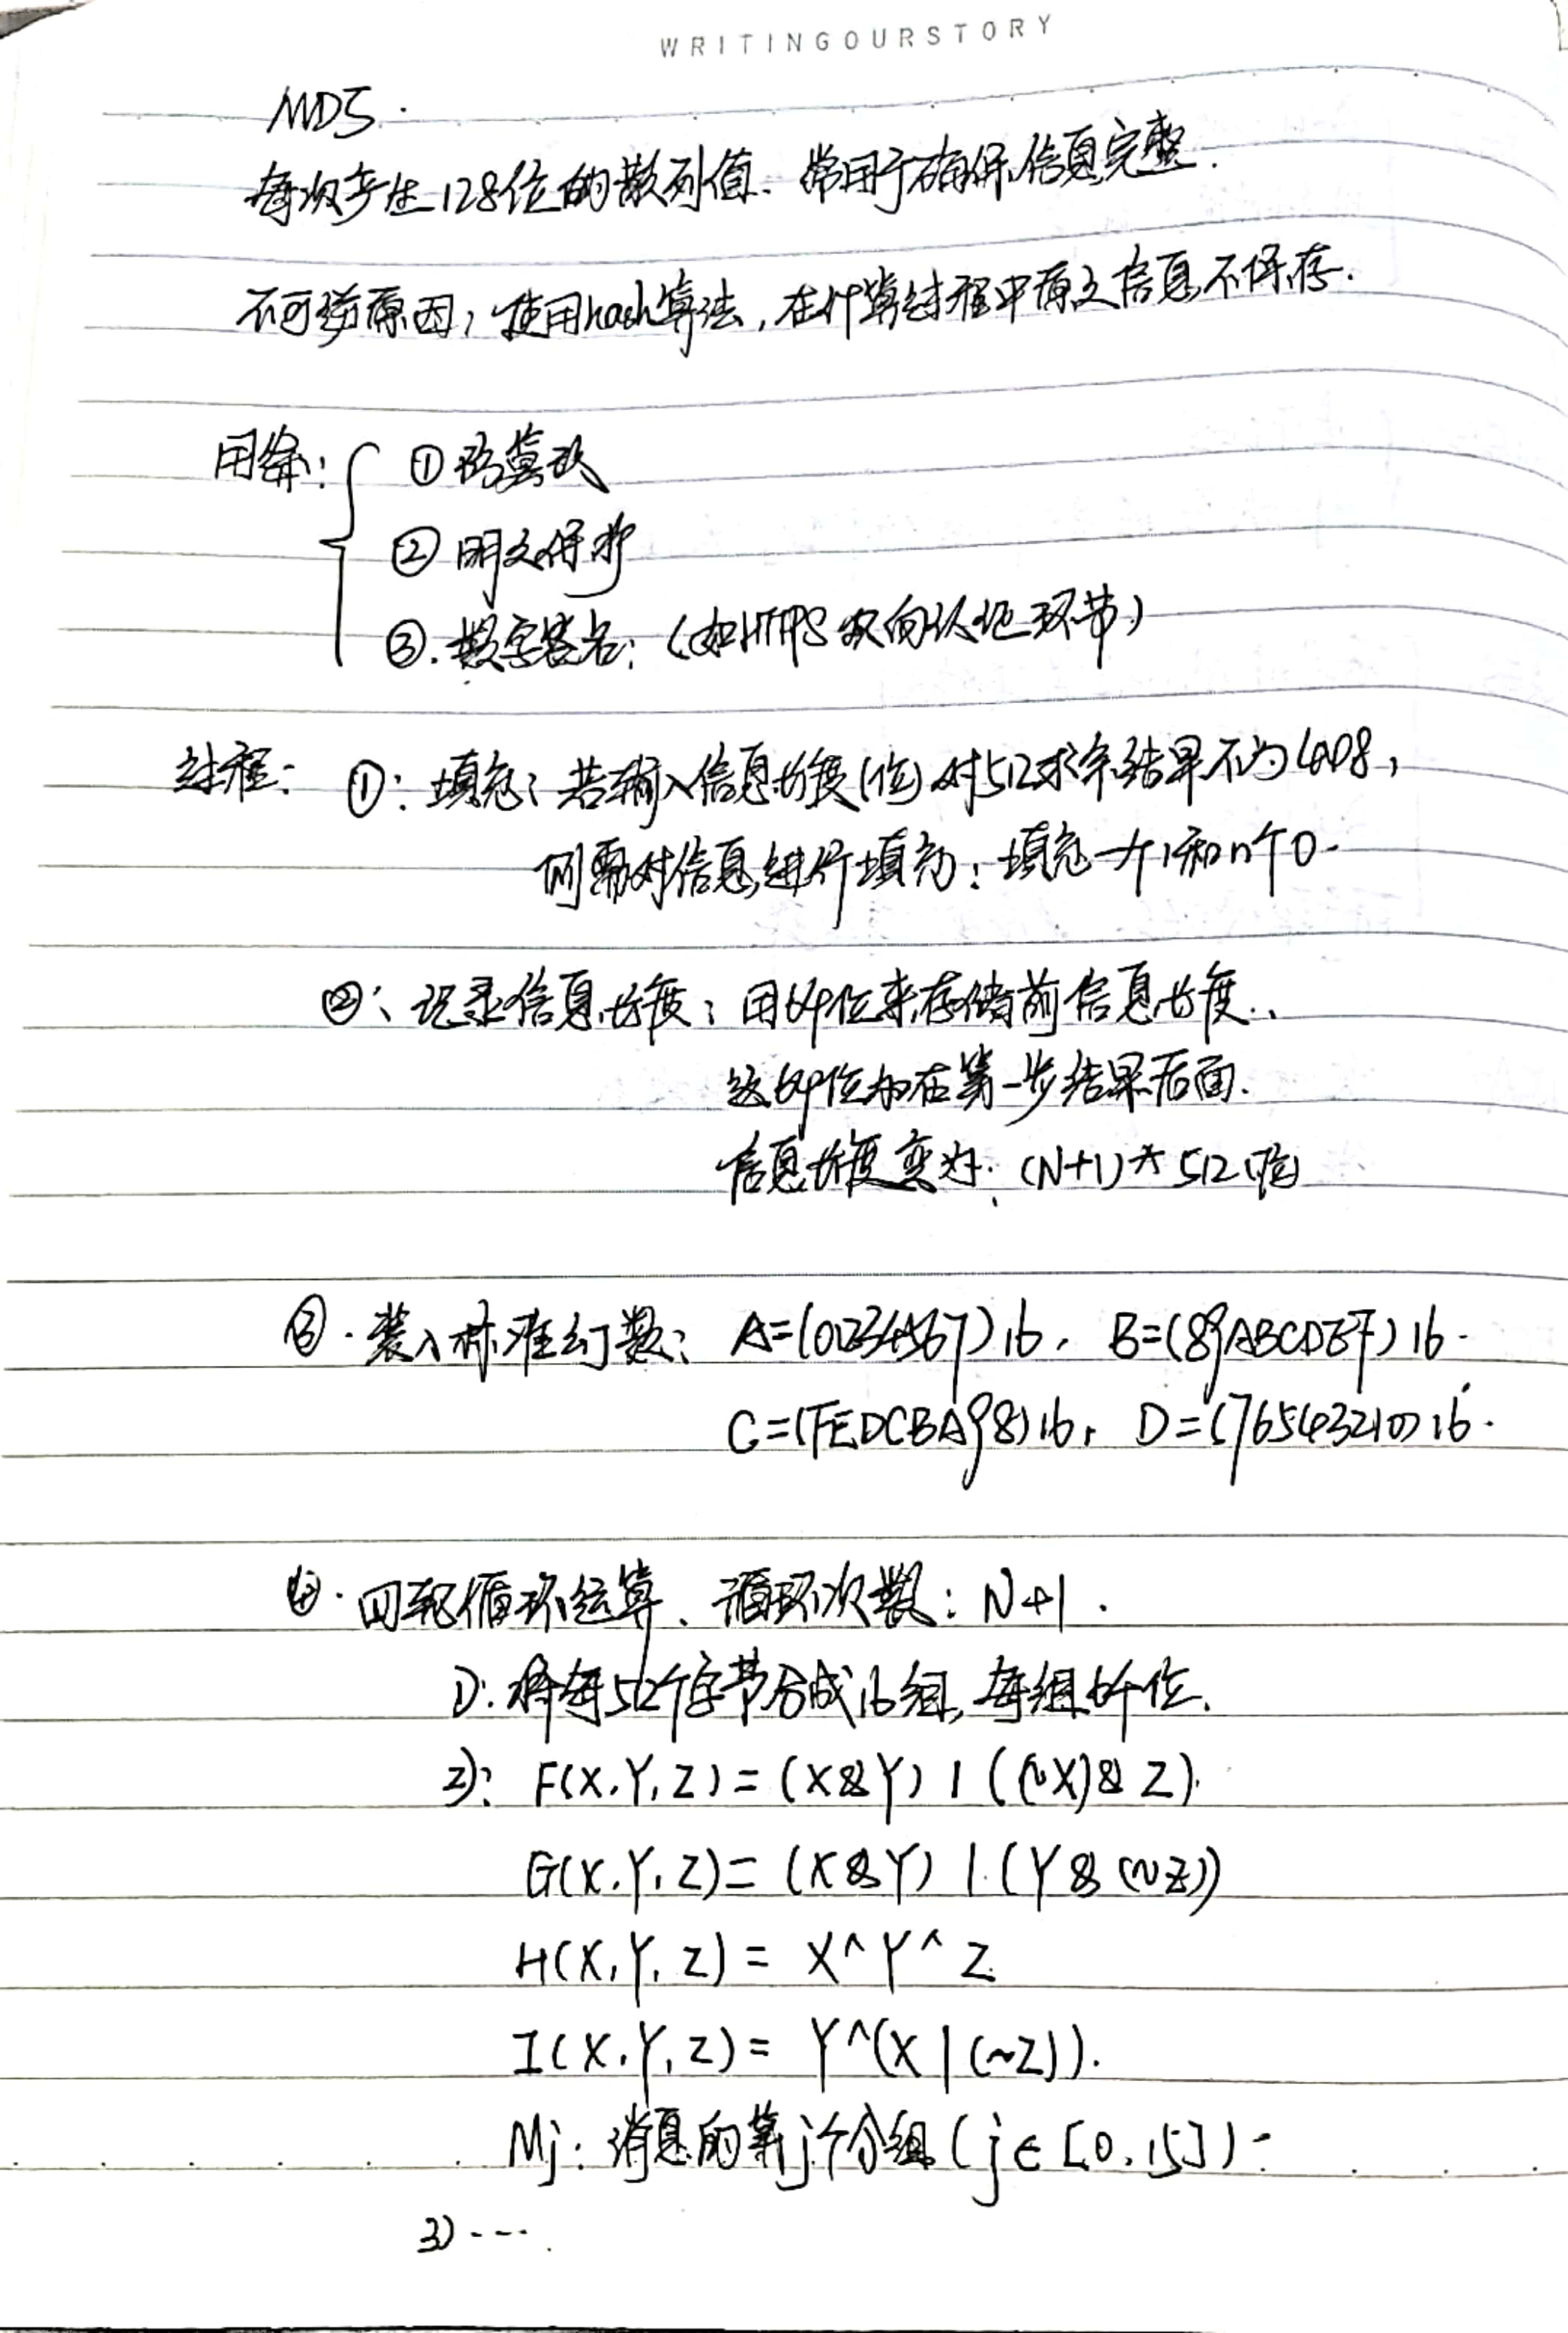 WRITINGOURSTORY
MD5.
每次产生128位的散列值、常用于确保信息完整.
不可逆原因: 使用hash算法,在计算过程中原文信息不保存.
用途: ①防篡改
② 明文保护
③. 数字签名: (如HTTPS双向认证环节)
过程: ①: 填充: 若输入信息长度(位)对512求余结果不为448,
则需对信息进行填充: 填充一个1和n个0.
②: 记录信息长度: 用64位来存储前信息长度.
这64位加在第一步结果后面.
信息长度变为: (N+1)*512位
③. 装入标准幻数: A=(01234567)16, B=(89ABCDEF)16.
C=(FEDCBA98)16, D=(76543210)16.
④. 四轮循环运算、循环次数: N+1.
1): 将每512个字节分成16组,每组64个位.
2): F(X,Y,Z)=(X&Y)|((~X)&Z).
G(X,Y,Z)=(X&Y)|(Y&(~Z))
H(X,Y,Z)= X^Y^Z
I(X,Y,Z)= Y^(X|(~Z)).
Mj: 消息的第j个分组(j∈[0,15])-
3)----.